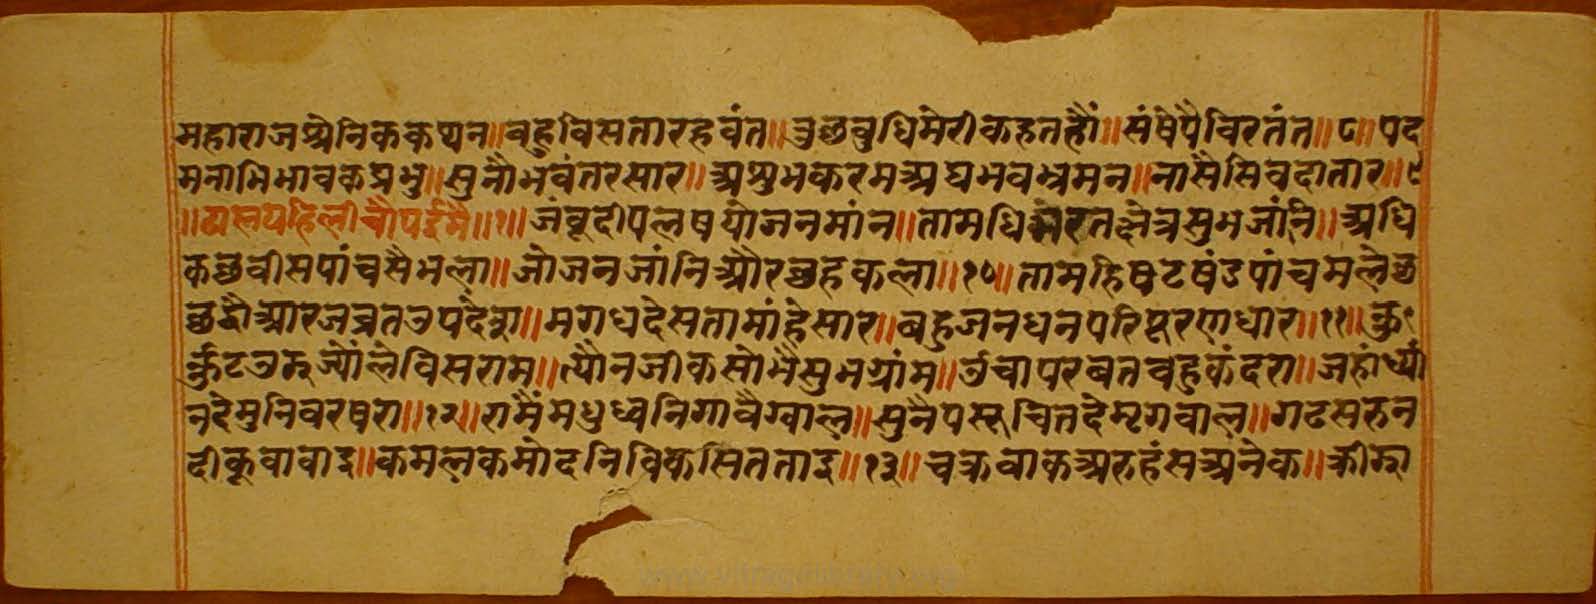 महाराजश्रेनिककथन॥बहुविसतारहवंत॥तुछबुधिमेरीकहतहौं॥संषेपैविरतंत॥८॥पद
मनाभिभावकप्रभु॥सुनौभवंतरसार॥अशुभकरमअघभवभ्रमन॥नासैसिवदातार॥९
॥ढालयहिलीचौपईमै॥१॥जंबूदीपलषयोजनमांन॥तामधिभेरतक्षेत्रसुभजांनि॥अधि
कछवीसपांचसैभला॥जोजनजांनिऔरछहकला॥१०॥तामहिषटषंडपांचमलेछ
छठौआरजव्रतउपदेश॥मगधदेसतामांहेसार॥बहुजनधनपरिपूरणधार॥११॥कु
र्कुटउडज्यौंलेविसराम॥त्यौनजीकसोभैसुभग्रांम॥ऊंचापरबतबहुकंदरा॥जहांध्यां
नदेमुनिवरषरा॥१२॥रागैंमधुध्वनिगावैग्वाल॥सुनैपसूचितदेमृगबाल॥गढसरुन
दीकूवावाइ॥कमलकमोदनिविकसितताइ॥१३॥चक्रवाकअरुहंसअनेक॥क्रीडा
www.vitragvani.org